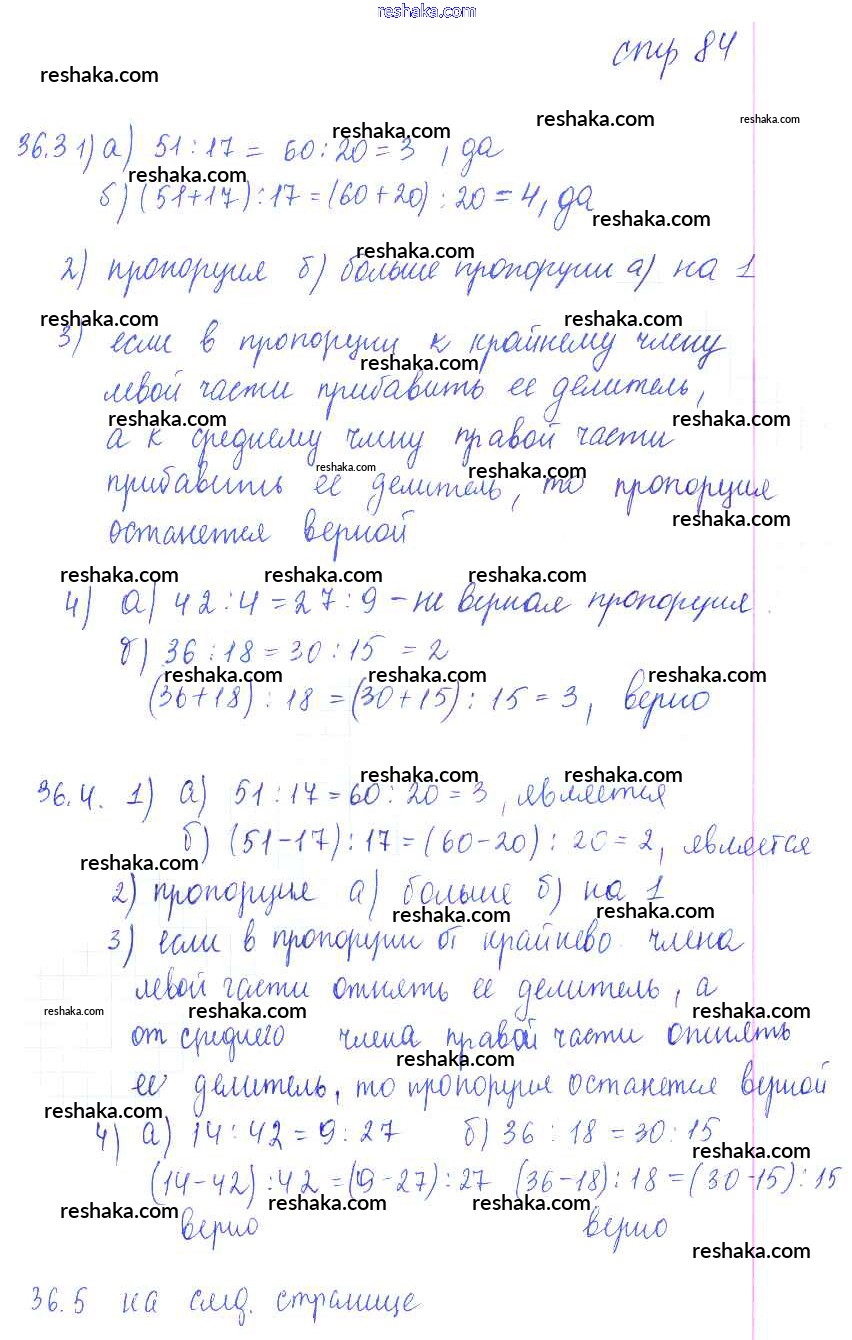 reshaka.com
стр 84
reshaka.com
reshaka.com reshaka.com reshaka.com
36.3 1) а) 51 : 17 = 60 : 20 = 3 , да
reshaka.com
б) (51+17) : 17 = (60+20) : 20 = 4, да
reshaka.com
reshaka.com
2) пропорция б) больше пропорции а) на 1
reshaka.com reshaka.com
3) если в пропорции к крайнему члену
reshaka.com
левой части прибавить ее делитель,
reshaka.com reshaka.com
а к среднему члену правой части
reshaka.com reshaka.com
прибавить ее делитель, то пропорция
reshaka.com
останется верной
reshaka.com reshaka.com reshaka.com
4) а) 42 : 4 = 27 : 9 – не верная пропорция
б) 36 : 18 = 30 : 15 = 2
reshaka.com reshaka.com reshaka.com
(36+18) : 18 = (30+15) : 15 = 3, верно
reshaka.com reshaka.com
36.4. 1) а) 51 : 17 = 60 : 20 = 3 , является
б) (51-17) : 17 = (60-20) : 20 = 2, является
reshaka.com
2) пропорция а) больше б) на 1
reshaka.com reshaka.com
3) если в пропорции от крайнево члена
левой части отнять ее делитель, а
reshaka.com reshaka.com reshaka.com reshaka.com
от среднего члена правой части отнять
reshaka.com
ее делитель, то пропорция останется верной
reshaka.com reshaka.com
4) а) 14 : 42 = 9 : 27 б) 36 : 18 = 30 : 15
reshaka.com
(14-42) : 42 = (9-27) : 27 (36-18) : 18 = (30-15) : 15
reshaka.com reshaka.com reshaka.com reshaka.com
верно верно
reshaka.com
36.5 на след. странице